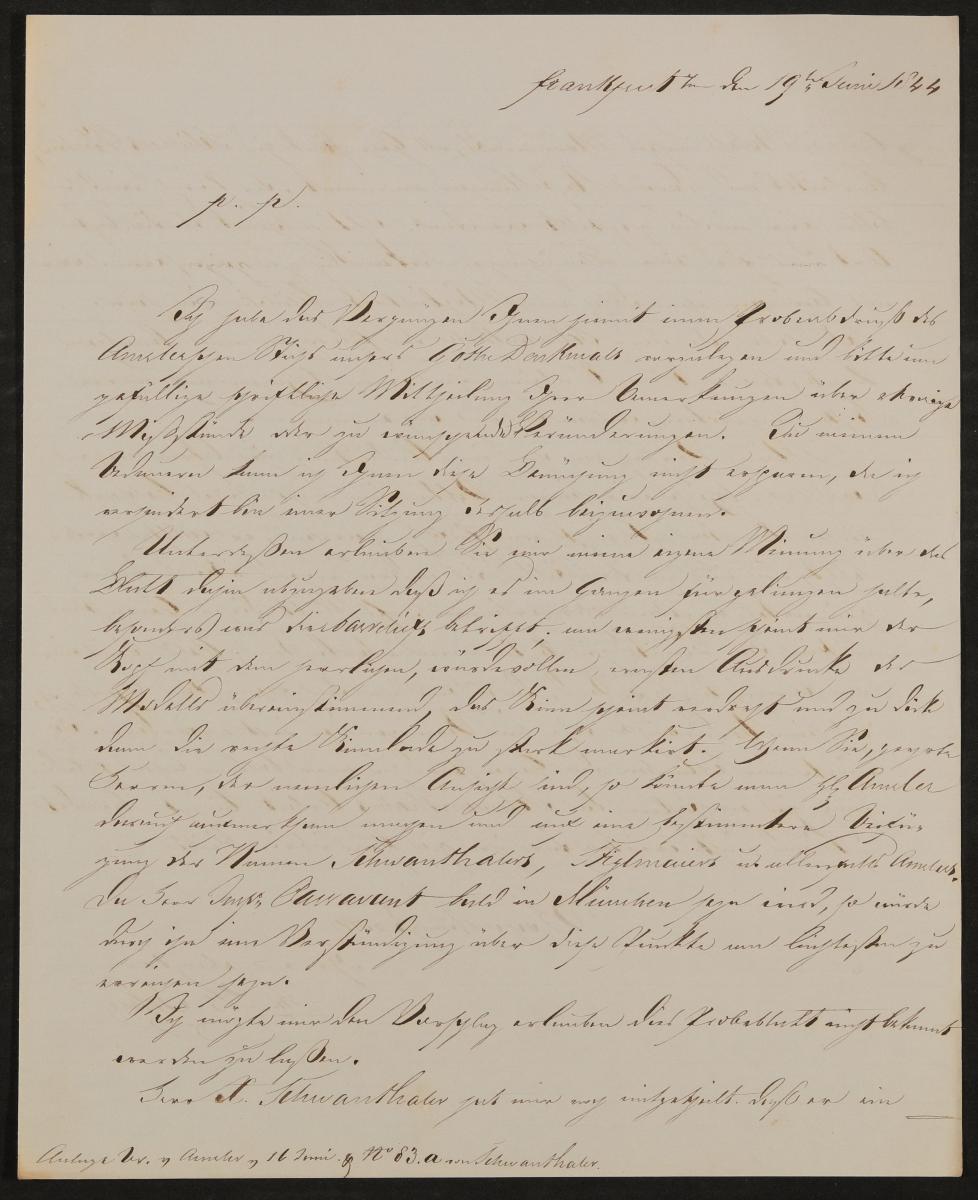 Frankfurt a/m den 19ten Juni 1844
p. p.
Ich habe das Vergnügen Ihnen hiermit einen Probeabdruck des
Amslerschen Stichs unsers Göthe Denkmals vorzulegen und bitte um
gefällige schriftliche Mittheilung Ihrer Bemerkungen über etwaige
Mißstände oder zu wünschende Veränderungen. Zu meinem
Bedauern kann ich Ihnen diese Bemühung nicht ersparen, da ich
verhindert bin einer Sitzung deshalb beizuwohnen.
Unterdessen erlauben Sie mir meine eigene Meinung über das
Blatt dahin abzugeben daß ich es im Ganzen für gelungen halte,
besonders was die basreliefs betrifft, am wenigsten scheint mir der
Kopf mit dem herrlichen, würdevollen, ernsten Ausdrucke des
Modells übereinstimmend, das Kinn scheint verdreht und zu dick
dann die rechte Kinnlade zu stark markirt. Wenn Sie, geehrte
Herren, der nemlichen Ansicht sind, so könnte man H. Amsler
darauf aufmerksam machen und auf eine bestimmtere Beifü-
gung der Namen Schwanthalers, Stiglmaiers u. allenfalls Amslers.
Da Herr Insp. Passavant bald in München seyn wird, so würde
durch ihn eine Verständigung über diese Punkte am leichtesten zu
erreichen seyn.
Ich möchte mir den Vorschlag erlauben dies Probeblatt nicht bekannt
werden zu lassen.
Herr X. Schwanthaler hat mir noch mitgetheilt daß er ein
Anlage Br. v. Amsler v. 16 Juni. & No 83.a von Schwanthaler.